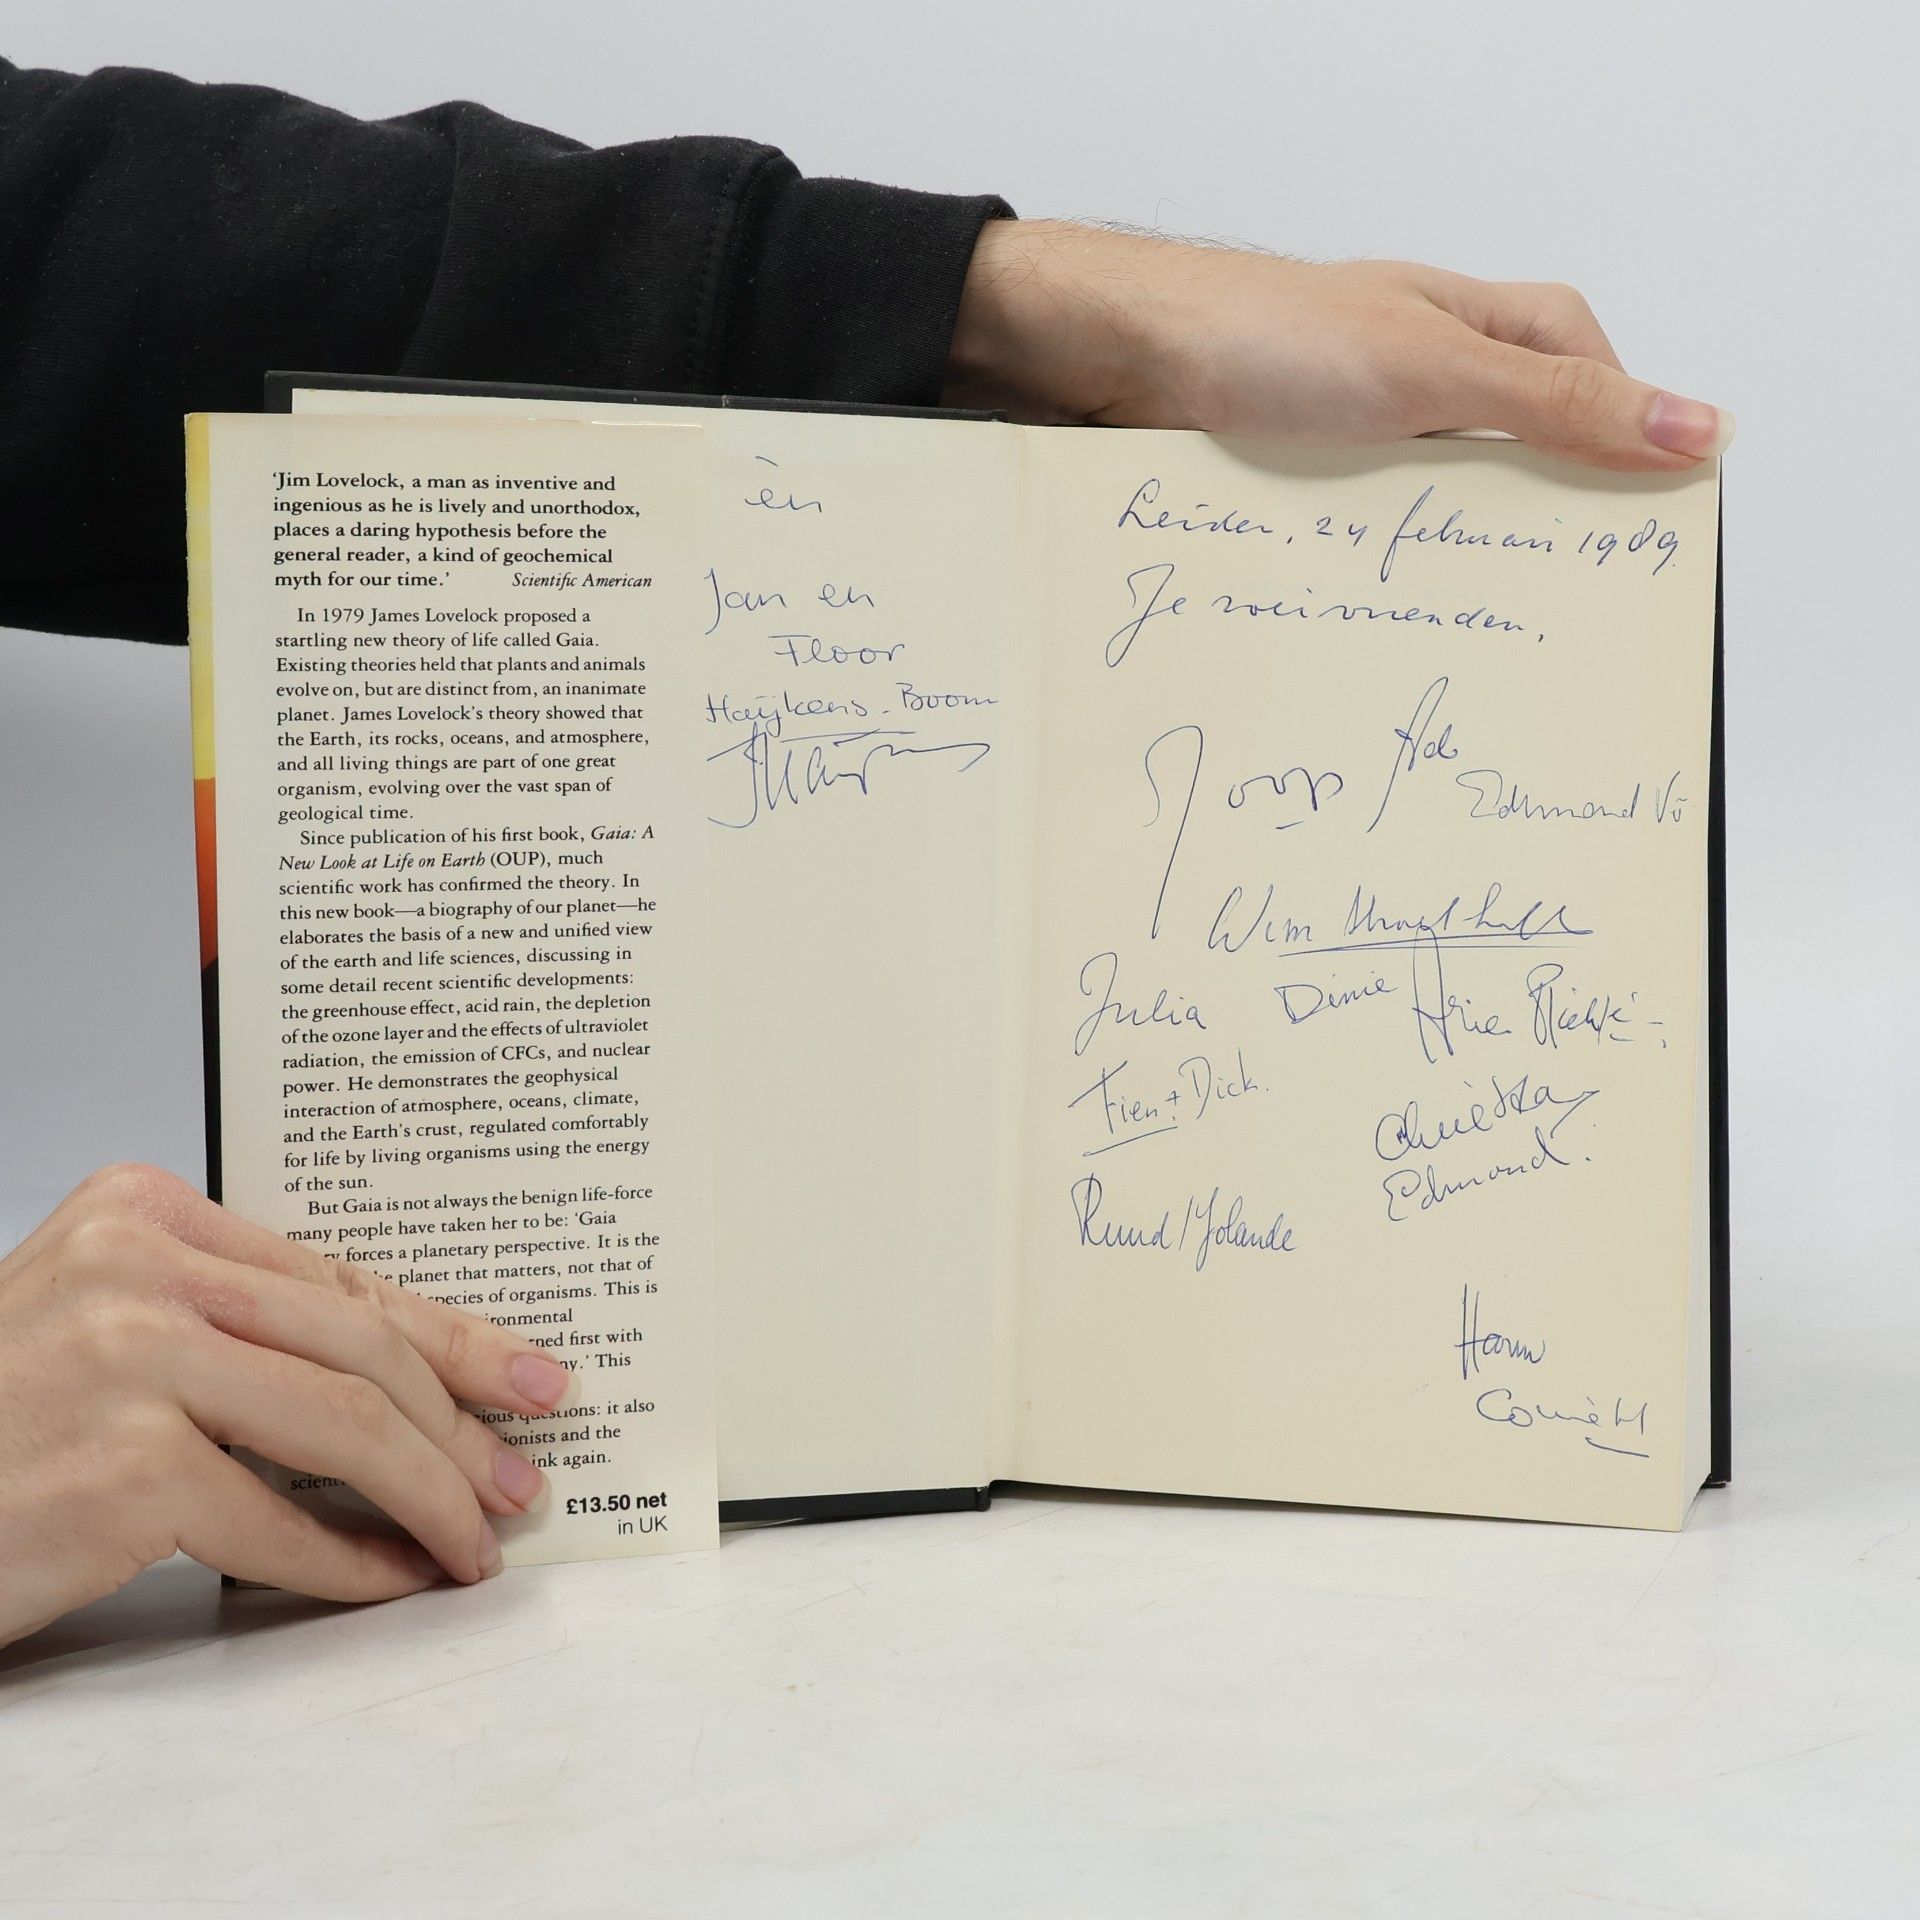 ‘Jim Lovelock, a man as inventive and
ingenious as he is lively and unorthodox,
places a daring hypothesis before the
general reader, a kind of geochemical
myth for our time.’ Scientific American
In 1979 James Lovelock proposed a
startling new theory of life called Gaia.
Existing theories held that plants and animals
evolve on, but are distinct from, an inanimate
planet. James Lovelock's theory showed that
the Earth, its rocks, oceans, and atmosphere,
and all living things are part of one great
organism, evolving over the vast span of
geological time.
Since publication of his first book, Gaia: A
New Look at Life on Earth (OUP), much
scientific work has confirmed the theory. In
this new book—a biography of our planet—he
elaborates the basis of a new and unified view
of the earth and life sciences, discussing in
some detail recent scientific developments:
the greenhouse effect, acid rain, the depletion
of the ozone layer and the effects of ultraviolet
radiation, the emission of CFCs, and nuclear
power. He demonstrates the geophysical
interaction of atmosphere, oceans, climate,
and the Earth's crust, regulated comfortably
for life by living organisms using the energy
of the sun.
But Gaia is not always the benign life-force
many people have taken her to be: ‘Gaia
forces a planetary perspective. It is the
planet that matters, not that of
species of organisms. This is
first with
This
questions: it also
and the
ink again.
£13.50 net
in UK
èn
Jan en
Floor
Haijkens-Boom
Leiden, 24 februari 1989.
Je roeivrienden,
Joop Ado
Edmond
Wim
Julia Dinie Arie
Fien + Dick.
Christa
Edmond.
Ruud/Yolande
Harm
Corrie H